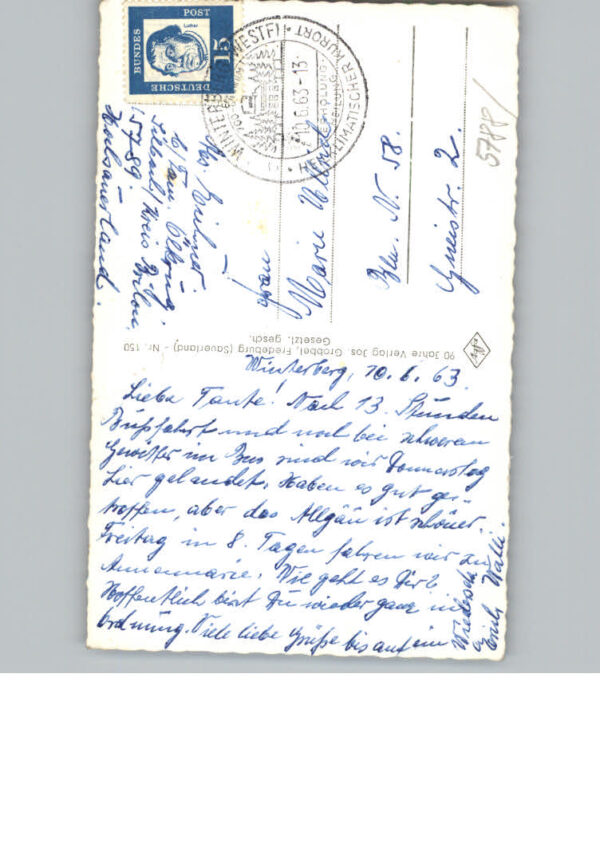 DEUTSCHE
BUNDES
POST
15
Luther
WINTERBERG (WESTF)
10.6.63-13
HEILKLIMATISCHER KURORT
5788/
Marie
N. 58.
Gneistr 2.
5789
Hochsauerland.
90 Jahre Verlag Jos. Grobbel, Fredeburg (Sauerland) - Nr. 150
Gesetzl. gesch.
Agfa
Winterberg, 10.6.63.
Liebe Tante! Nach 13. Stunden
Busfahrt und noch bei schweren
Gewitter im Bus sind wir Donnerstag
hier gelandet. Haben es gut ge-
troffen, aber das Allgäu ist schöner.
Freitag in 8. Tagen fahren wir zu
Annemarie. Wie geht es Dir?
Hoffentlich bist Du wieder ganz in
Ordnung. Viele liebe Grüße bis auf ein
Wiedersehn
Erich Walli.